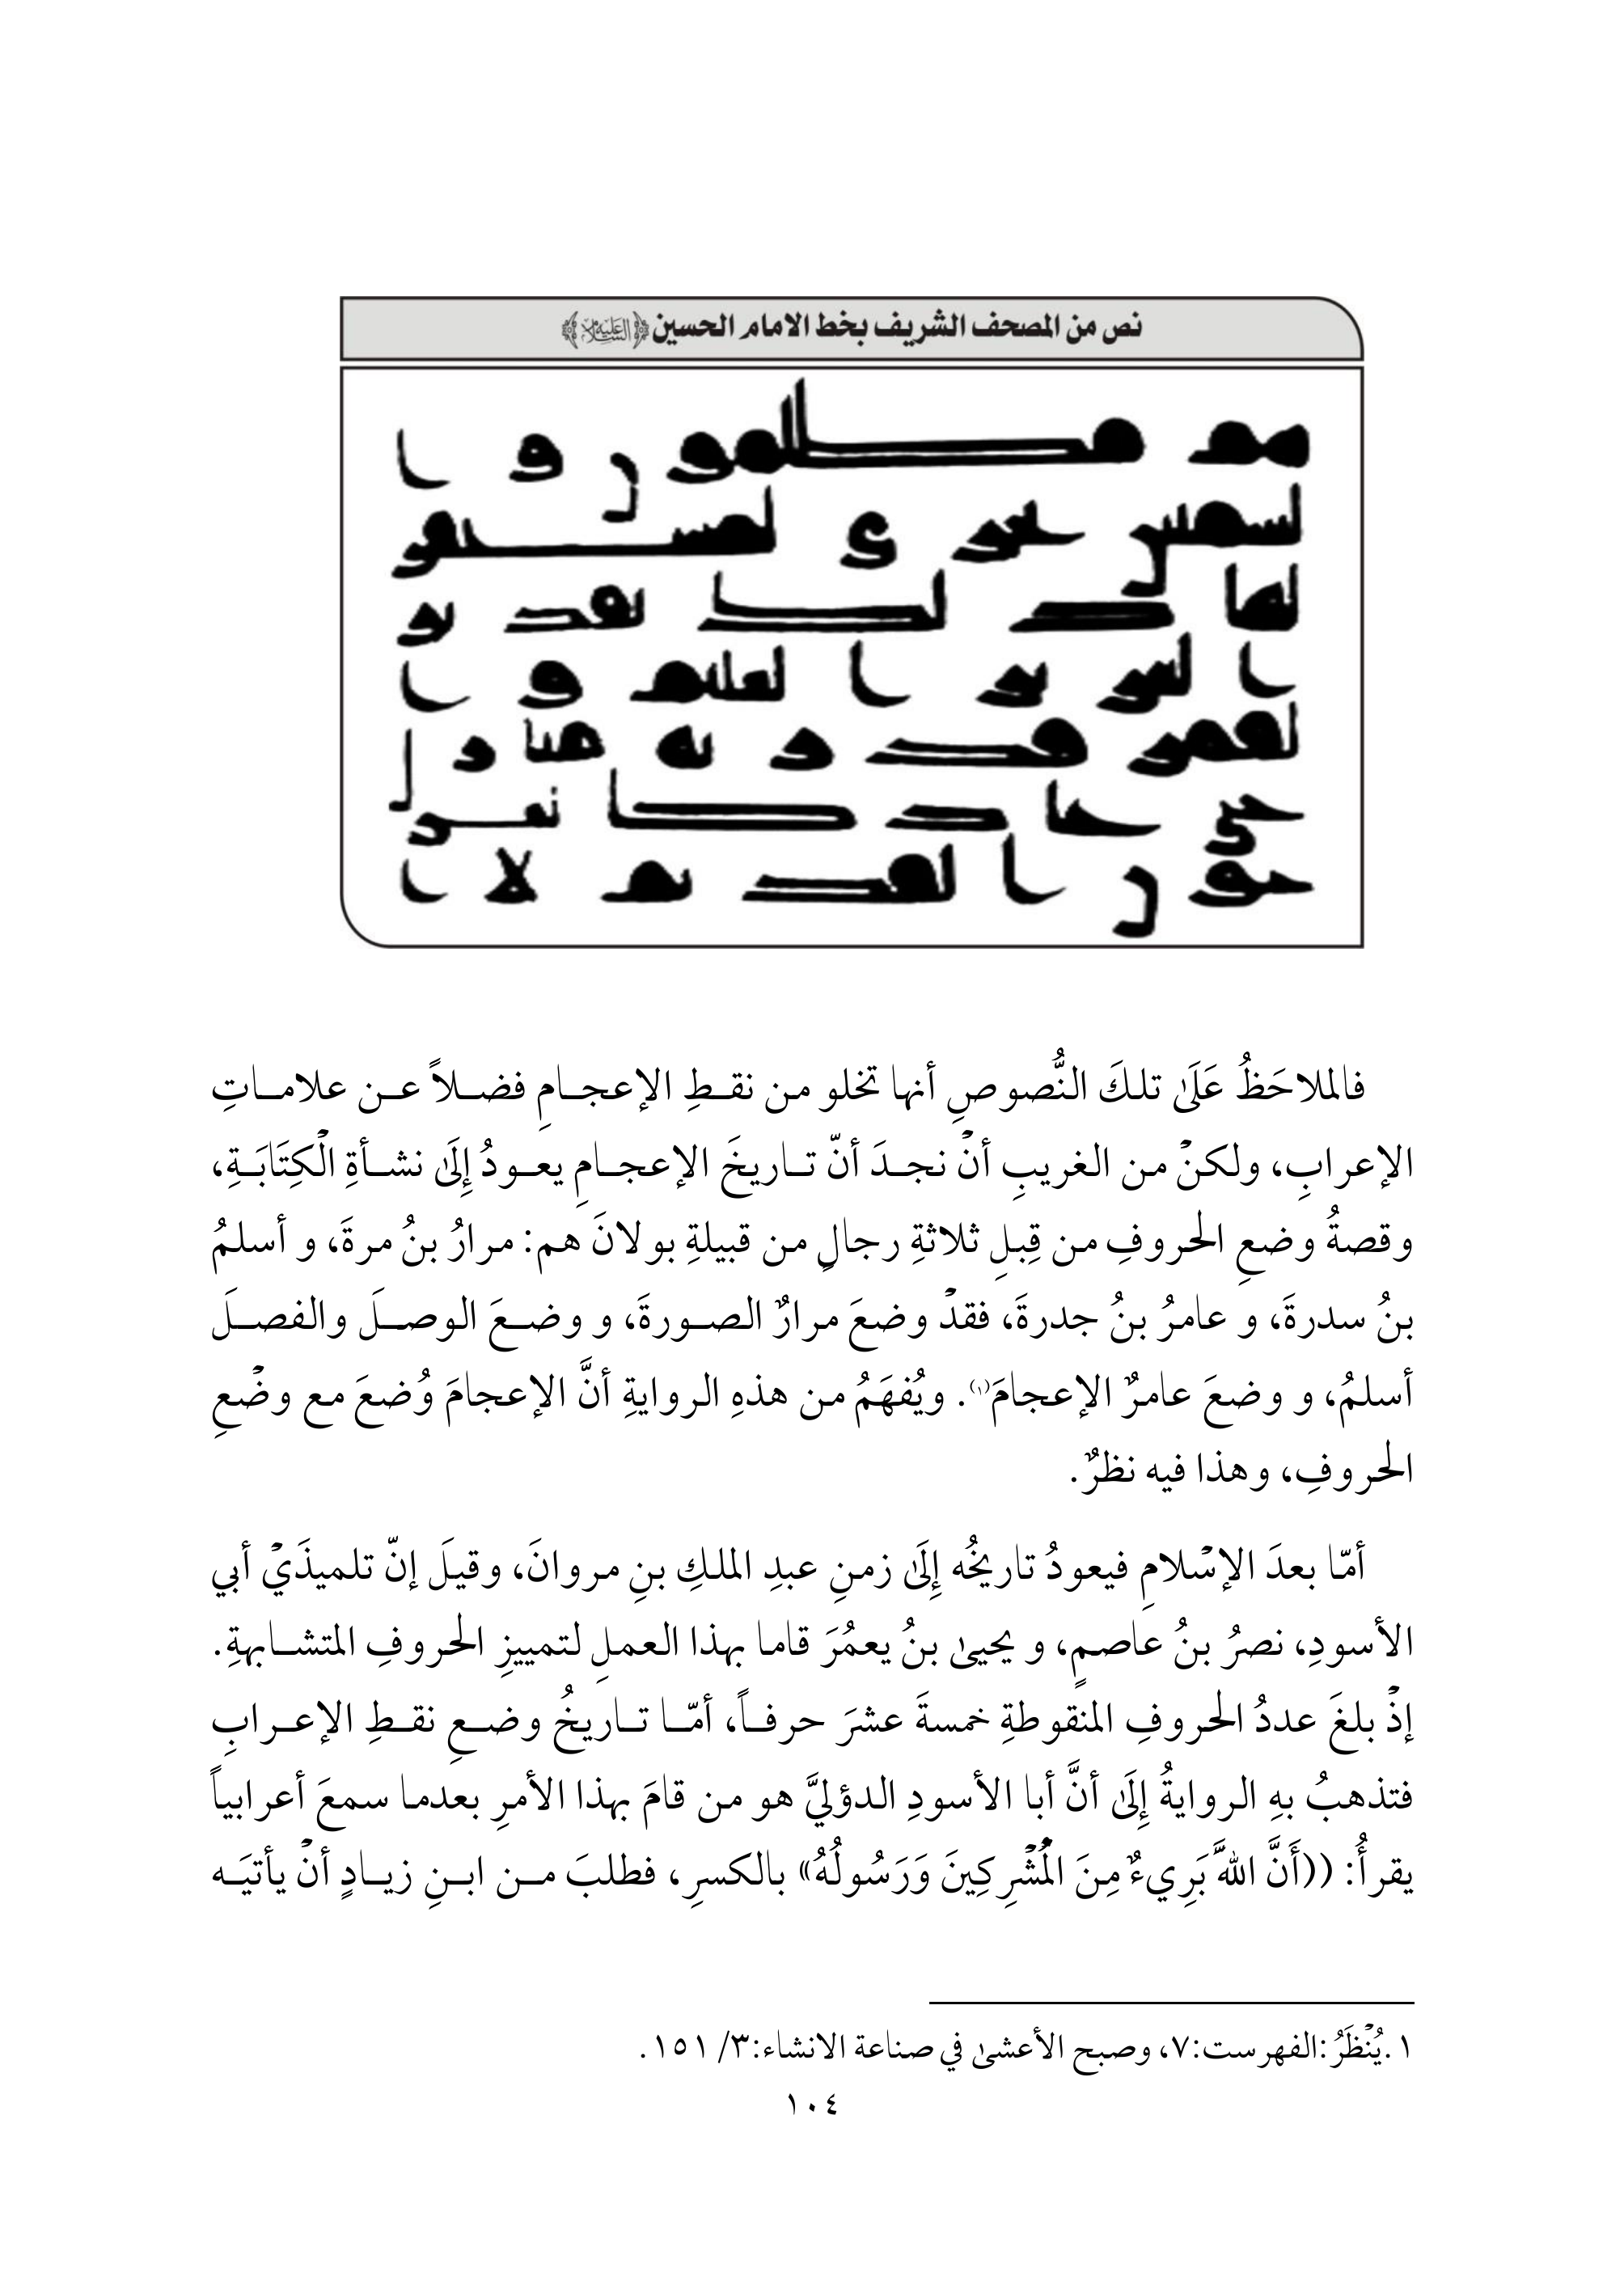 نص من المصحف الشريف بخط الامام الحسين ﴿عليه السلام﴾
فالملاحَظُ عَلَىٰ تلكَ النُّصوصِ أنها تخلو من نقطِ الإعجامِ فضلاً عن علاماتِ
الإعرابِ، ولكنْ من الغريبِ أنْ نجدَ أنّ تاريخَ الإعجامِ يعودُ إِلَىٰ نشأةِ الْكِتَابَةِ،
وقصةُ وضعِ الحروفِ من قِبلِ ثلاثةِ رجالٍ من قبيلةِ بولانَ هم: مرارُ بنُ مرةَ، و أسلمُ
بنُ سدرةَ، و عامرُ بنُ جدرةَ، فقدْ وضعَ مرارٌ الصورةَ، و وضعَ الوصلَ والفصلَ
أسلمُ، و وضعَ عامرٌ الإعجامَ(١). ويُفهَمُ من هذهِ الروايةِ أنَّ الإعجامَ وُضعَ مع وضْعِ
الحروفِ، وهذا فيه نظرٌ.
أمّا بعدَ الإسْلامِ فيعودُ تاريخُه إِلَىٰ زمنِ عبدِ الملكِ بنِ مروانَ، وقيلَ إنّ تلميذَيْ أبي
الأسودِ، نصرُ بنُ عاصمٍ، و يحيىٰ بنُ يعمُرَ قاما بهذا العملِ لتمييزِ الحروفِ المتشابهةِ.
إذْ بلغَ عددُ الحروفِ المنقوطةِ خمسةَ عشرَ حرفاً، أمّا تاريخُ وضعِ نقطِ الإعرابِ
فتذهبُ بهِ الروايةُ إِلَىٰ أنَّ أبا الأسودِ الدؤليَّ هو من قامَ بهذا الأمرِ بعدما سمعَ أعرابياً
يقرأُ: ((أَنَّ اللهَّ بَرِيءٌ مِنَ الْمُشْرِكِينَ وَرَسُولُهُ)) بالكسرِ، فطلبَ من ابنِ زيادٍ أنْ يأتيَه
١.يُنْظَرُ:الفهرست:٧، وصبح الأعشىٰ في صناعة الانشاء:٣/ ١٥١.
١٠٤